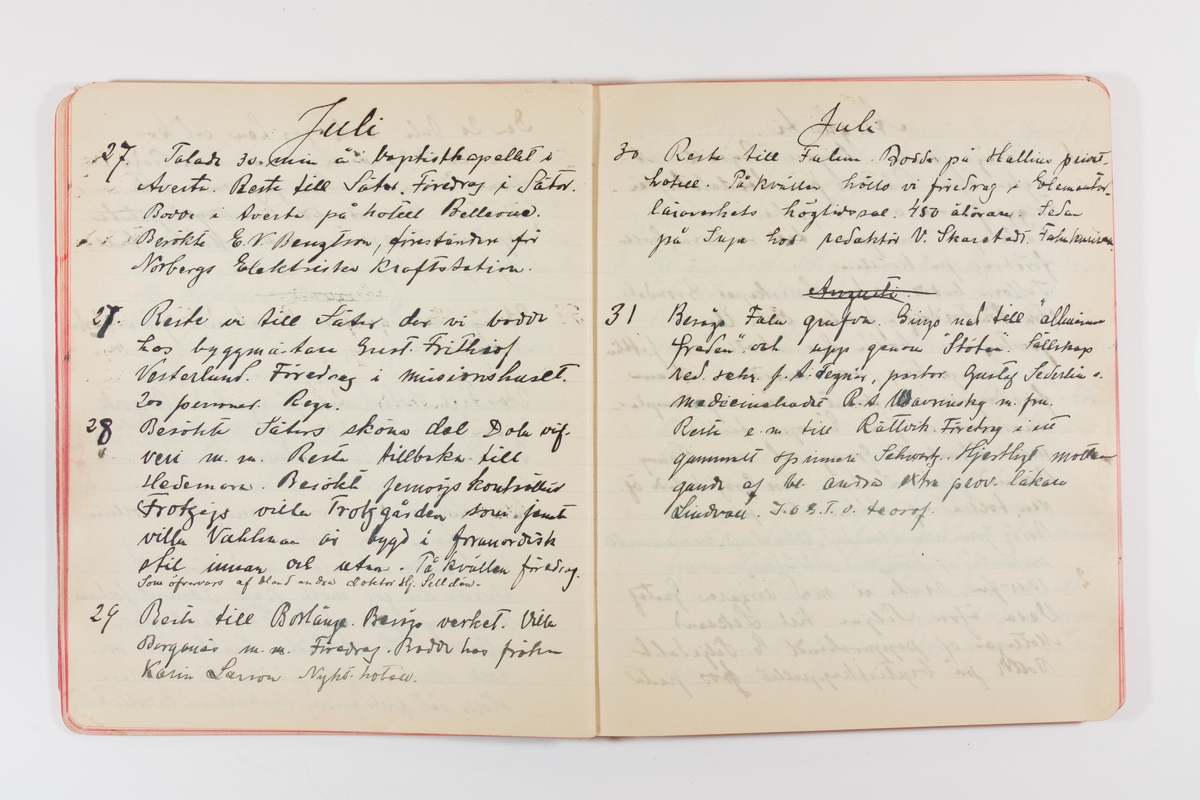 Juli
27. Talade 30 min å baptistkapellet i
Avesta. Reste till Säter. Föredrag i Säter.
Bodde i Avesta på hotell Bellevue.
Besökte E. V. Bengtson, föreståndare för
Norbergs Elektriska kraftstation.
27. Reste vi till Säter der vi bodde
hos byggmästare Gust. Frithiof
Vesterlund. Föredrag i missionshuset.
200 personer. Regn.
28 Besökte Säters sköna dal Dola vif-
veri m. m. Reste tillbaka till
Hedemora. Besökte jernvägskontrollör
Trotzigs villa Trotzgården som jemte
villa Vahlman är bygd i fornnordisk
stil innan och utan. På kvällen föredrag.
Som öfvervars af bland andra doktor Hj. Selldén.
29 Reste till Borlänge. Besågo verket. Villa
Bergnäs m. m. Föredrag. Bodde hos fröken
Karin Larson Nyhb. hotell.
Juli
30 Reste till Falun. Bodde på Hallins privat-
hotell. På kvällen höllo vi föredrag i Elementar-
läroverkets högtidssal. 450 åhörare. Sedan
på Supé hos redaktör V. Skarstedt. Falukuriren.
Augusti.
31 Besågo Falu grufva. Gingo ned till "allmänna
freden" och upp genom Stöten. Sällskap
red. sekr. f. A. Tegnér, pastor Gustaf Sederlin o.
medicinalrådet R. A. Wawrinsky m. fru.
Reste e. m. till Rättvik. Föredrag i ett
gammalt spinneri Schwartz. Hjertligt motta-
gande af bl. andra extra prov. läkare
Lindvall. I.O.G.T. o. teosof.